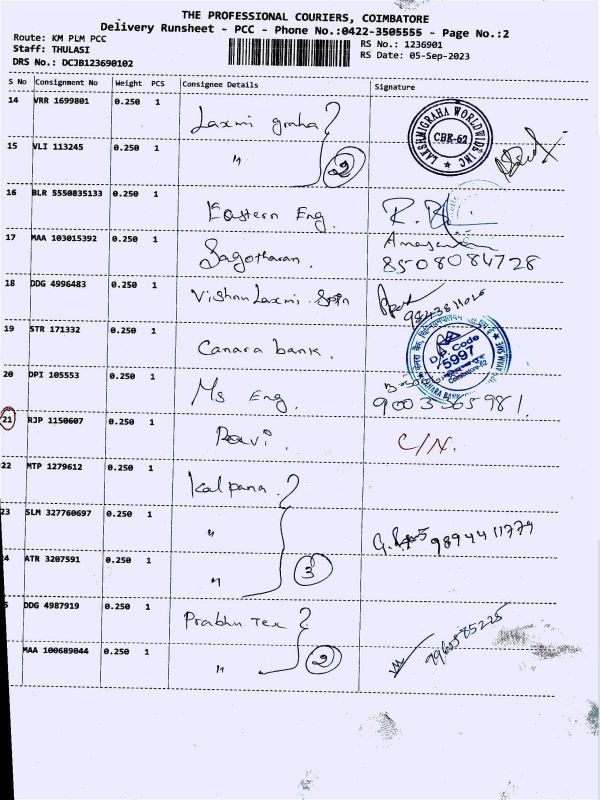 THE PROFESSIONAL COURIERS, COIMBATORE
Delivery Runsheet - PCC - Phone No.:0422-3505555 - Page No.:2
Route: KM PLM PCC
Staff: THULASI
DRS No.: DCJB123690102
RS No.: 1236901
RS Date: 05-Sep-2023
S No Consignment No Weight PCS Consignee Details Signature
14 VRR 1699801 0.250 1 Laxmi graha
LAKSHMIGRAHA WORLDWIDE INC
CBE-62
15 VLI 113245 0.250 1 " 2
16 BLR 5550835133 0.250 1 Eastern Eng.
17 MAA 103015392 0.250 1 Sagotharan. 8508084728
18 DDG 4996483 0.250 1 Vishnu Laxmi
19 STR 171332 0.250 1 Canara bank.
D.P. Code
5997
Coimbatore-62
CANARA BANK
20 DPI 105553 0.250 1 Ms Eng. 9003365981
21 RJP 1150607 0.250 1 Ravi. C/N.
22 MTP 1279612 0.250 1 Kalpana
23 SLM 327760697 0.250 1 " 9894411779
24 ATR 3207591 0.250 1 " 3
5 DDG 4987919 0.250 1 Prabhu Tex 7965585225
MAA 100689044 0.250 1 " 2